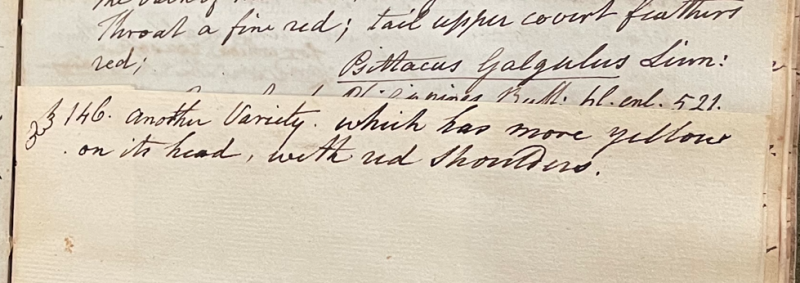 Throat a fine red; tail upper covert feathers
red; Psittacus Galgulus Linn:
Buff: pl. enl. 521.
146. another Variety. which has more yellow
on its head, with red Shoulders.